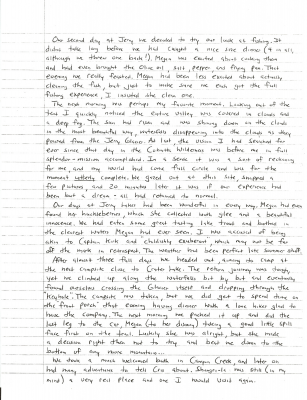 Our second day at Jerry we decided to try our luck at fishing. It
didnt take long before we had caught a nice size dinner (4 in all,
although we threw one back!). Megan was excited about cooking them
and had even brought the olive oil, salt, pepper, and frying pan. That
evening we really feasted. Megan had been less excited about actually
cleaning the fish, but just to make sure we each got the full
fishing experience, I insisted she clean one.
The next morning was perhaps my favorite moment. Looking out of the
tent I quickly noticed the entire valley was covered in clouds and
a deep fog. The sun had risen and was shining down on the clouds
in the most beautiful way, waterfalls disappearing into the clouds as they
poured from the Jerry Glacier. At last the vision I had searched for
ever since that day in the Canyon Wilderness was before me in full
splendor - mission accomplished. In a sense it was a sort of
for me, and my world had come full circle and was for the
moment utterly complete. We gazed out at this site, snapped a
few pictures, and 20 minutes later it was if our experience had
been but a dream - all had returned to normal.
Our days at Jerry Lakes had been wonderful in every way. Megan had even
found her huckleberries which she collected with glee and a beautiful
innocence. We had eaten some great tasting lake trout and bathed in
the clearest waters Megan had ever seen. I was accused of being
akin to Captain Kirk and childishly exuberant which may not be far
off the mark in retrospect. The weather had been perfect the summer stuff.
After almost three full days we headed out, aiming to camp at
the next campsite close to Crater Lake. The return journey was tough,
yet we climbed up along the waterfalls bit by bit and eventually
found ourselves crossing the Glacier itself and dropping through the
Keyhole. The campsite was taken, but we did get to spend time on
the front porch that evening having dinner. Nick, a lone hiker glad to
have the company. The next morning we packed it up and did the
last leg to the car, Megan (to her dismay) taking a good little spill
face first on the trail. Luckily she was alright, but she made
a decision right then not to try and beat me down to the
bottom of any more mountains...
We drove a most welcomed back in Canyon Creek, and later on
had many adventures to tell Cra about. Shangri-la was still (in my
mind) a very real place and one I would visit again.